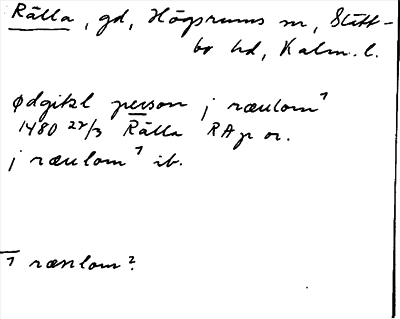 Rälla, gd, Högsrums sn, Slätt-
bo hd, Kalm. l.
ødgitzl person j rænlom ¹
1480 22/3 Rälla RAp or.
j rænlom ¹ ib.
¹ rænlom?